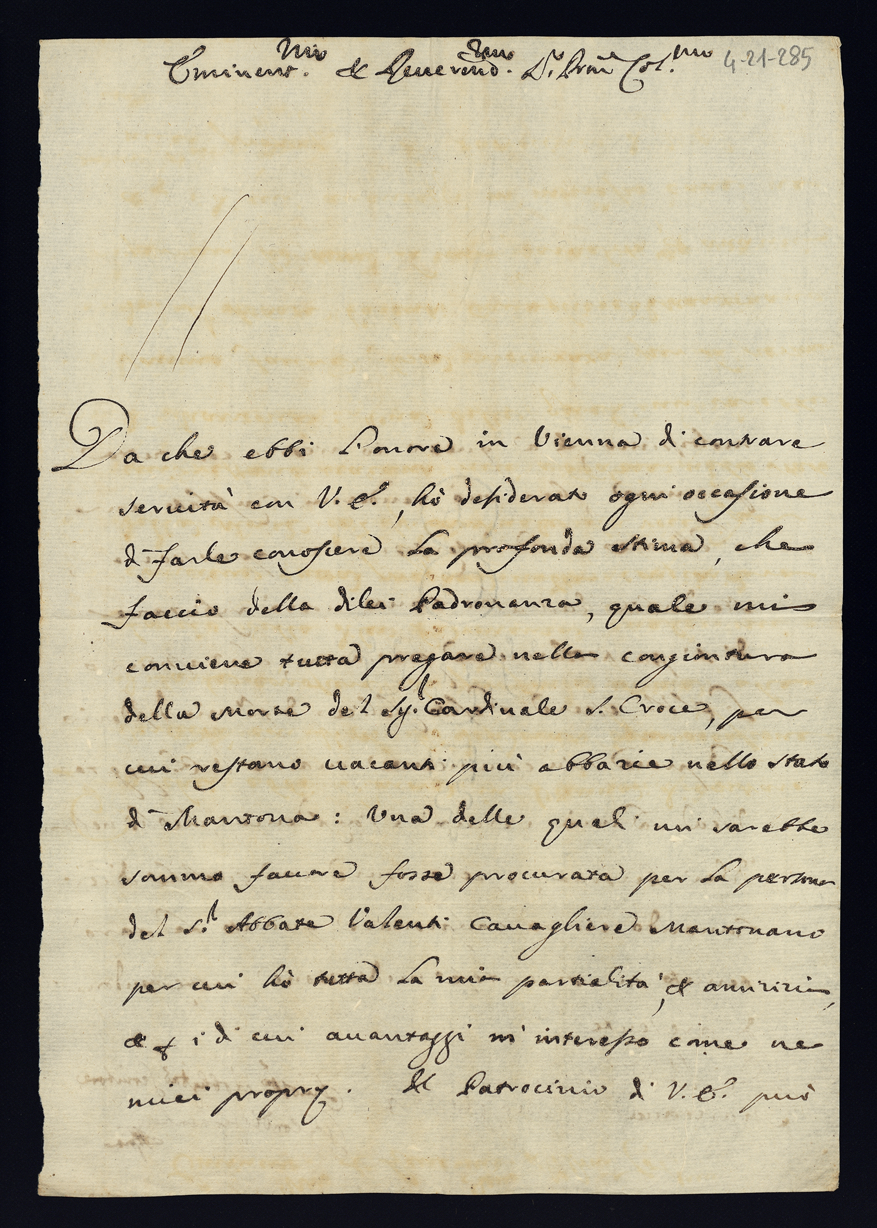 Eminent.mo & Reuerend.mo S.r Prñe Col.mo 4-21-285
Da che ebbi l'onore in Vienna di contrare
seruitù con V. E., hò desiderato ogni occasione
di farle conoscere la profonda stima, che
faccio della dilei Padronanza, quale mi
conuiene tutta pregare nella congiontura
della morte del Sig.r Cardinale S. Croce, per
cui restano uacanti più abbazie nello stato
di Mantoua: Una delle quali mi sarebbe
sommo fauore fosse procurata per la persona
del S.r Abbate Valenti Cauagliere Mantouano
per cui hò tutta la mia partialità, & amicizia,
& p i di cui auantaggi m'interesso come ne
miei proprij. Il Patrocinio di V. E. può